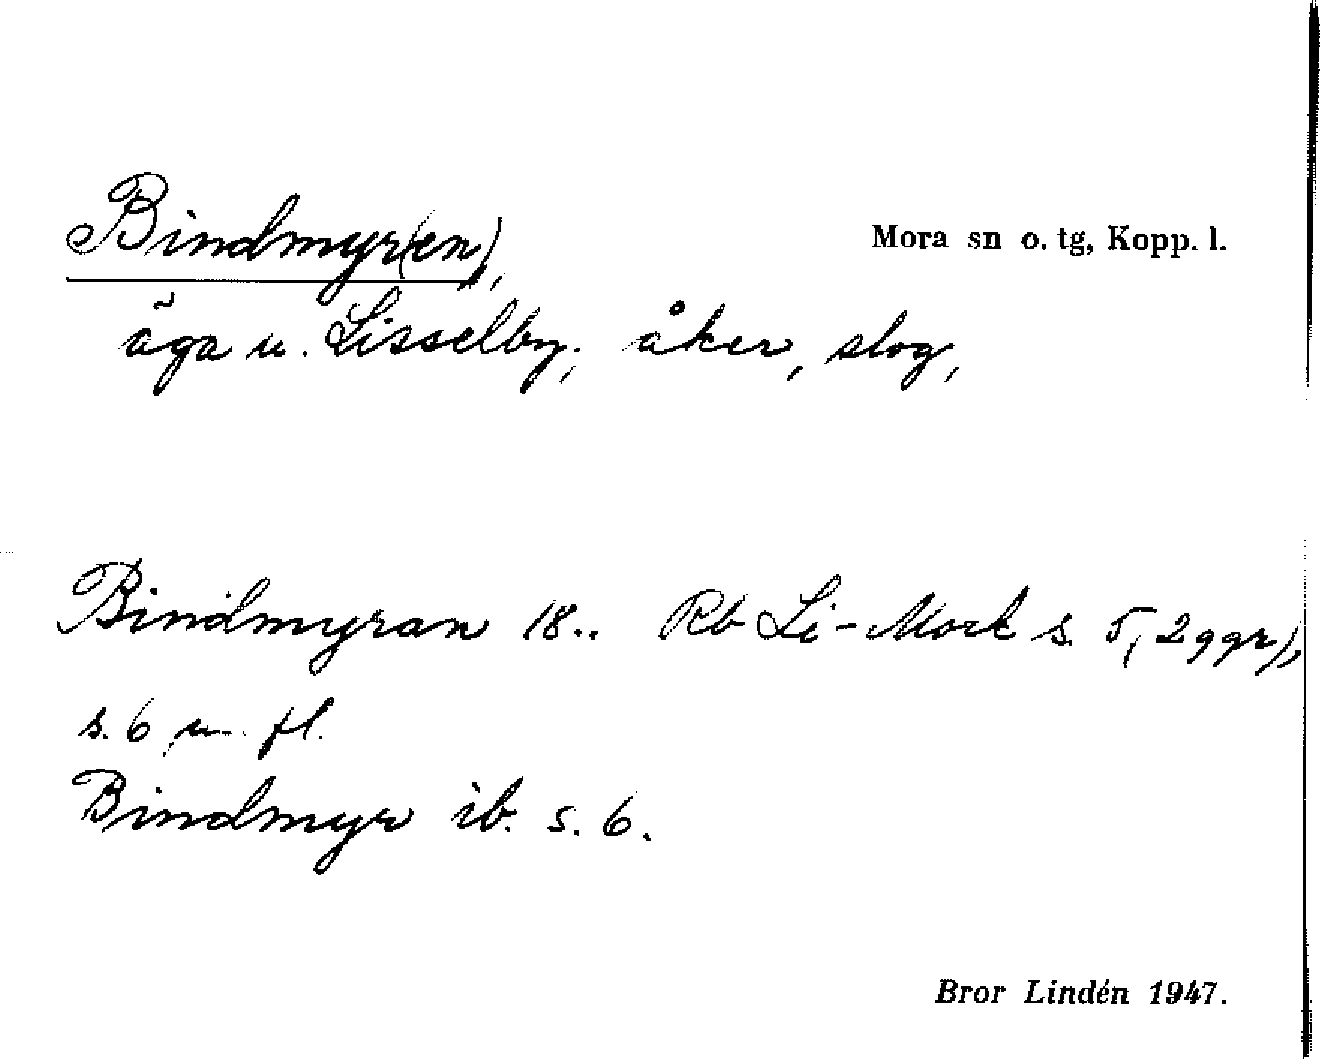 Bindmyr(en),
Mora sn o. tg, Kopp. l.
äga u. Lisselby; åker, slog,
Bindmyran 18.. Rb Li-Mork s. 5, (2 ggr),
s. 6 m. fl.
Bindmyr ib. s. 6.
Bror Lindén 1947.